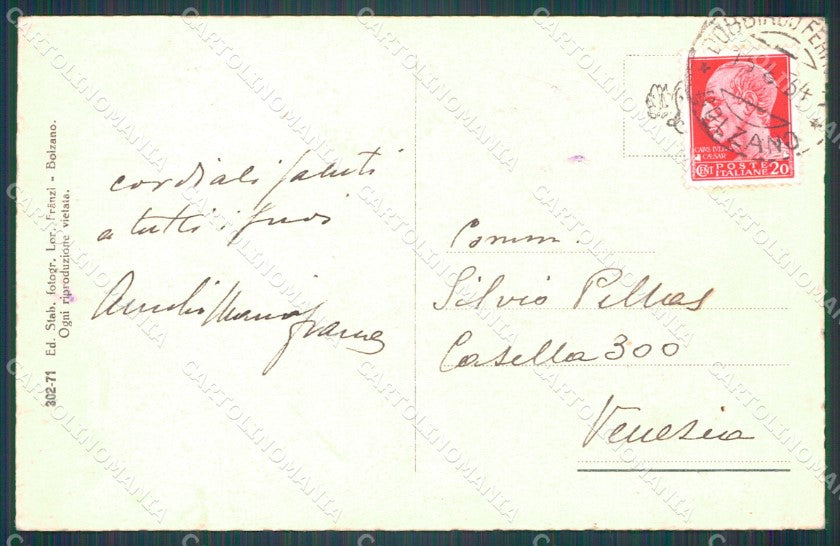 302-71 Ed. Stab. fotogr. Lor. Fränzl - Bolzano.
Ogni riproduzione vietata.
cordiali saluti
a tutti i suoi
DOBBIACO
BOLZANO
CAIVS IVLIVS
CAESAR
CENT POSTE ITALIANE 20
Comm.
Silvio
Casella 300
Venezia
CARTOLINOMANIA